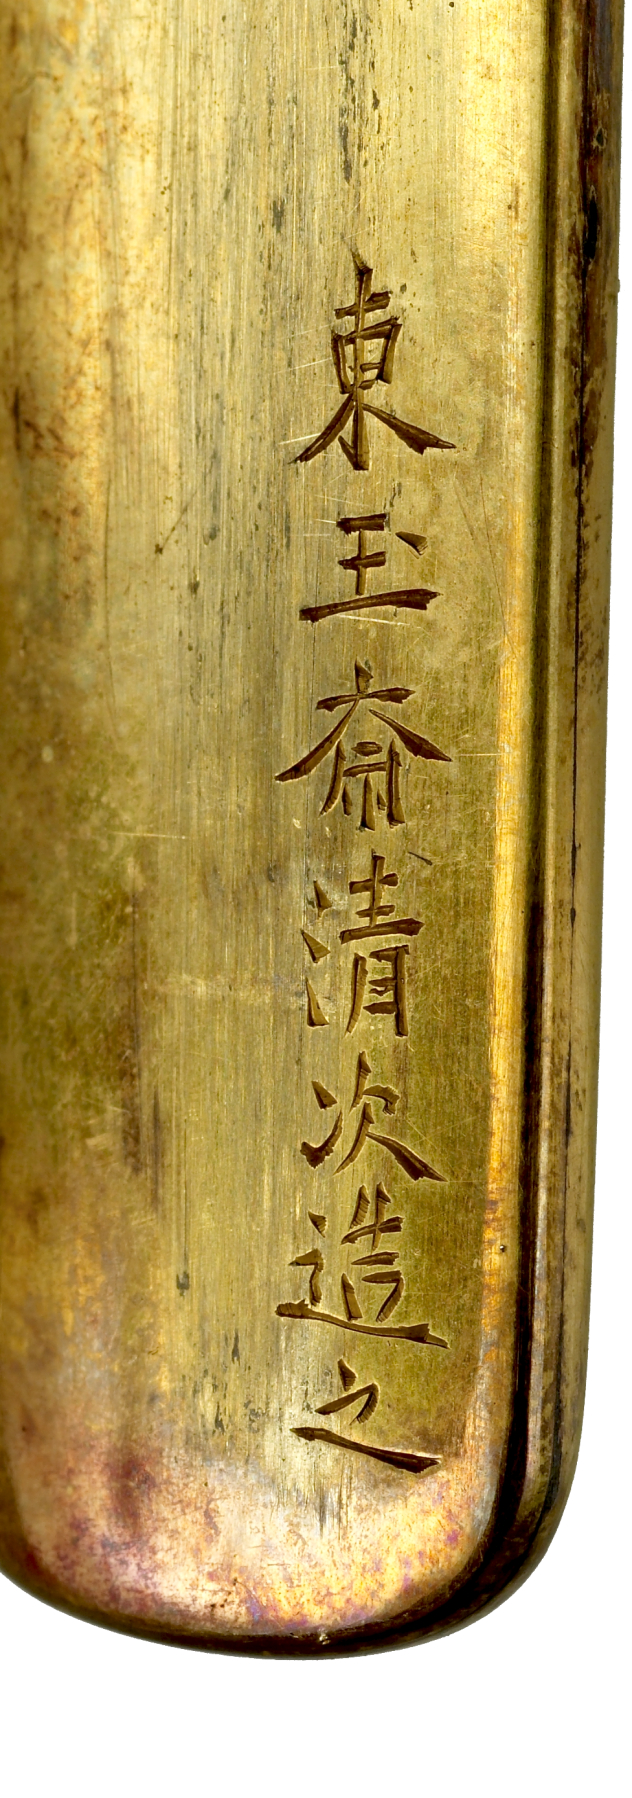 東玉斎清次造之